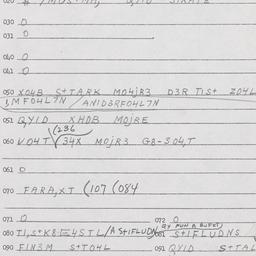 030 0
031 0
040 0
041 0
050 XO4B S+TARK MO4JR3 D3R TIS+ ZO4L
3,MFO4L7N / ANID3RFO4L7N
051 QYID XHDB MOJRE
(236
060 VO4T 34X MOJR3 G8-SO4,T
061 0
070 FARA,XT (107 (084
071 0
072 0
080 TI,S+K8 4STL/A S+IFLUDN
081 S+IFLUDNS
090 FIN3M S+TO4L
091 QYID S+TAL